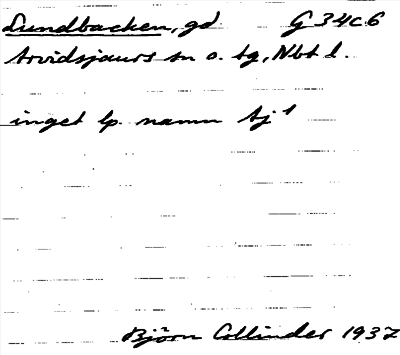 Lundbacken, gd. G 34c6
Arvidsjaurs sn o. tg, Nbt l.
inget lp. namn Aj¹
Björn Collinder 1937